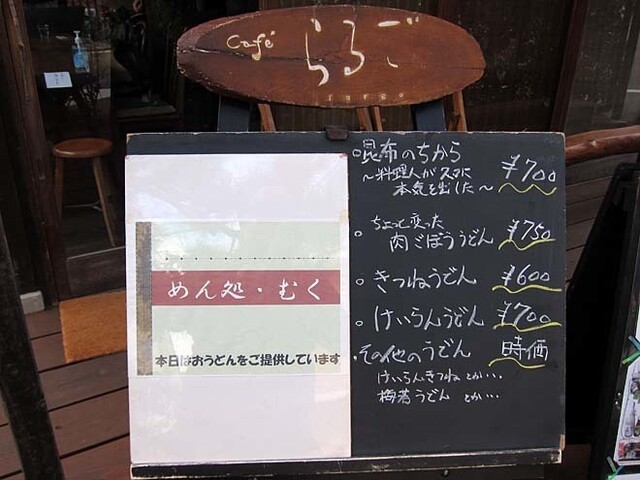 Café
らるご
めん処・むく
本日はおうどんをご提供しています
昆布のちから ¥700
～料理人が久々に
本気を出した～
ちょっと変った
肉ごぼううどん ¥750
きつねうどん ¥600
けいらんうどん ¥700
その他のうどん 時価
けいらんきつね とか…
梅若うどん とか…